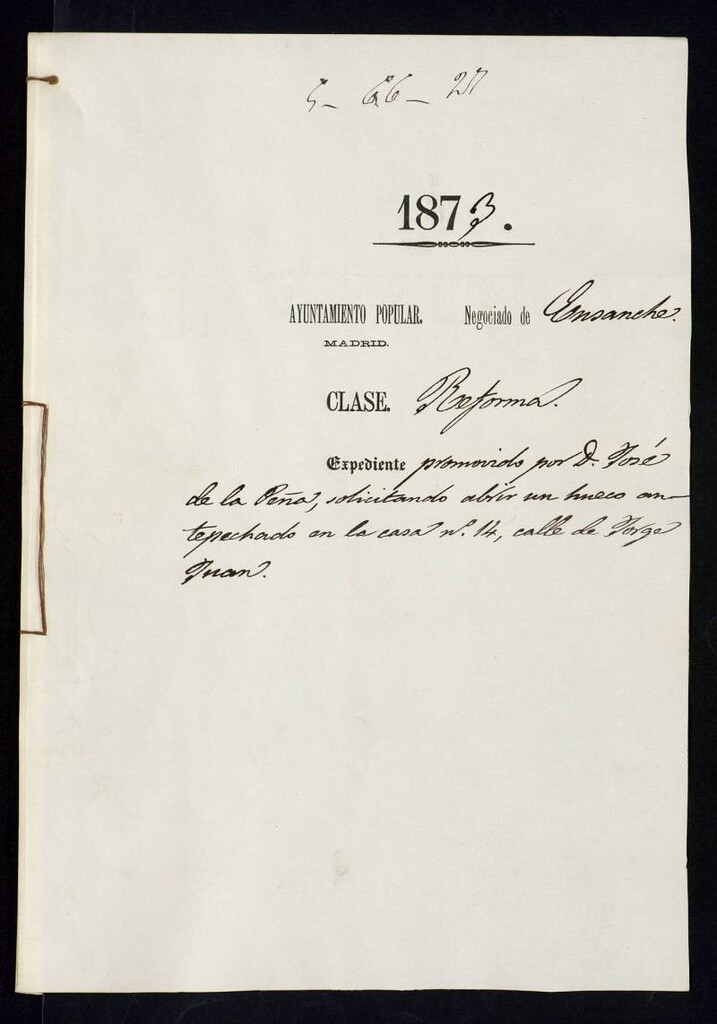 5- 66- 27
1873.
AYUNTAMIENTO POPULAR. Negociado de Ensanche.
MADRID.
CLASE. Reforma.
Expediente promovido por D. José
de la Peña, solicitando abrir un hueco an-
tepechado en la casa nº. 14, calle de Jorge
Juan.